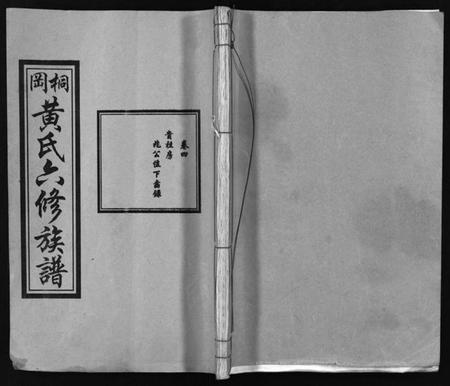 桐岡
黃氏六修族譜
卷四
貴柱房
兆公位下齒錄